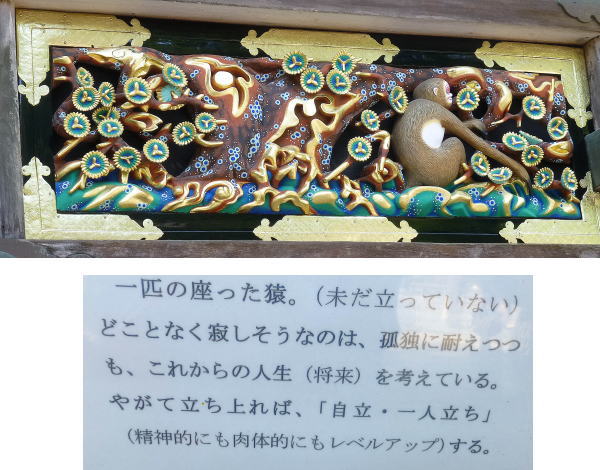 一匹の座った猿。(未だ立っていない)
どことなく寂しそうなのは、孤独に耐えつつ
も、これからの人生(将来)を考えている。
やがて立ち上れば、「自立・一人立ち」
(精神的にも肉体的にもレベルアップ)する。